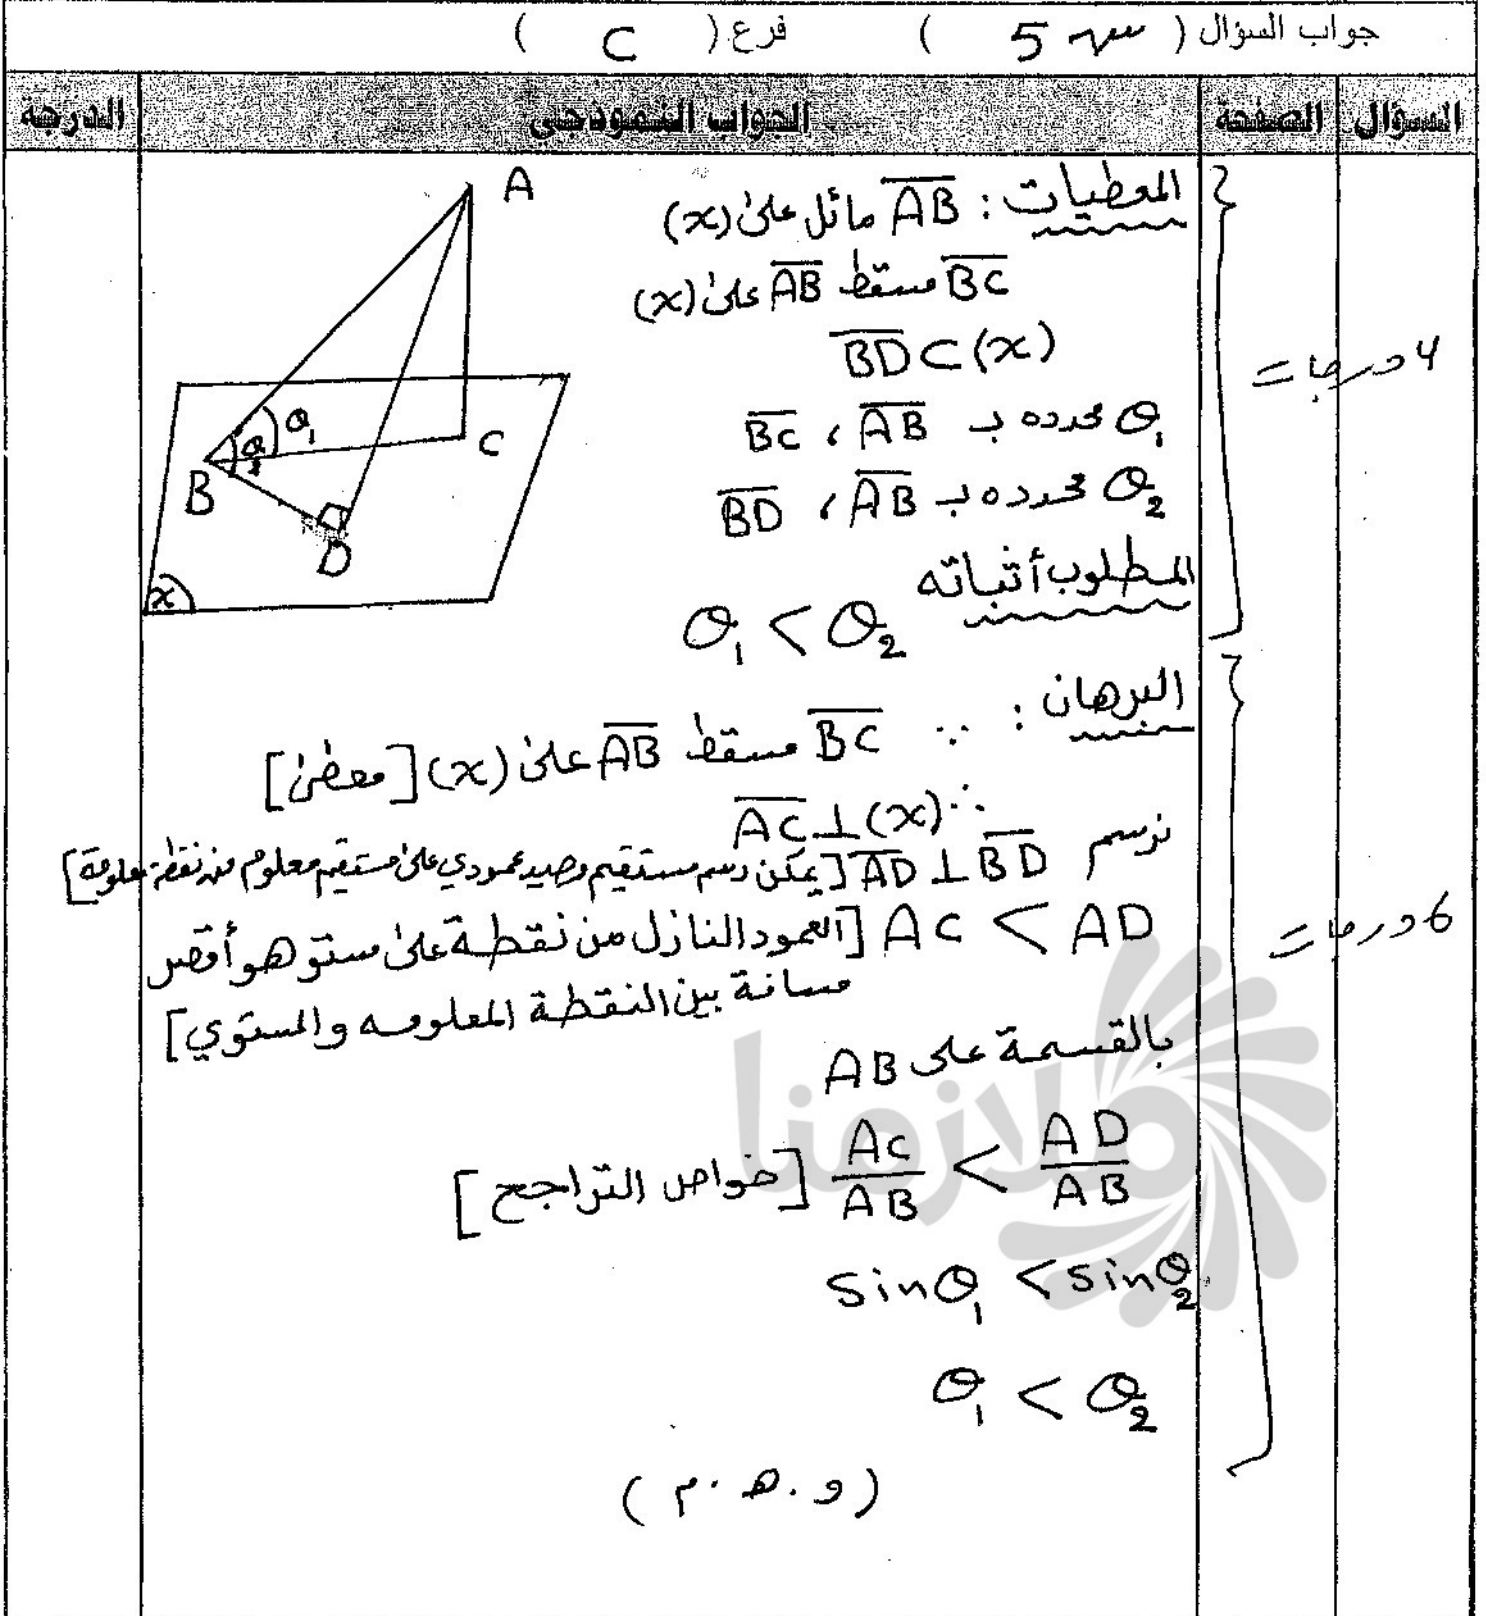 جواب السؤال ( س 5 ) فرع ( C )
السؤال الصفحة الجواب النموذجي الدرجة
المعطيات : AB مائل على (x)
BC مسقط AB على (x)
BD ⊂ (x)
θ₁ محدده بـ AB ، BC
θ₂ محدده بـ AB ، BD
4 درجات
المطلوب أثباته
θ₁ < θ₂
A
B
C
D
θ₁
θ₂
(x)
البرهان : ∵ BC مسقط AB على (x) [معطى]
∴ AC ⊥ (x)
نرسم AD ⊥ BD [يمكن رسم مستقيم وحيد عمودي على مستقيم معلوم من نقطة معلومة]
AC < AD [العمود النازل من نقطة على مستو هو أقصر
مسافة بين النقطة المعلومه والمستوي]
6 درجات
بالقسمة على AB
AC/AB < AD/AB [خواص التراجح]
sinθ₁ < sinθ₂
θ₁ < θ₂
(و . ه . م)
ملازمنا